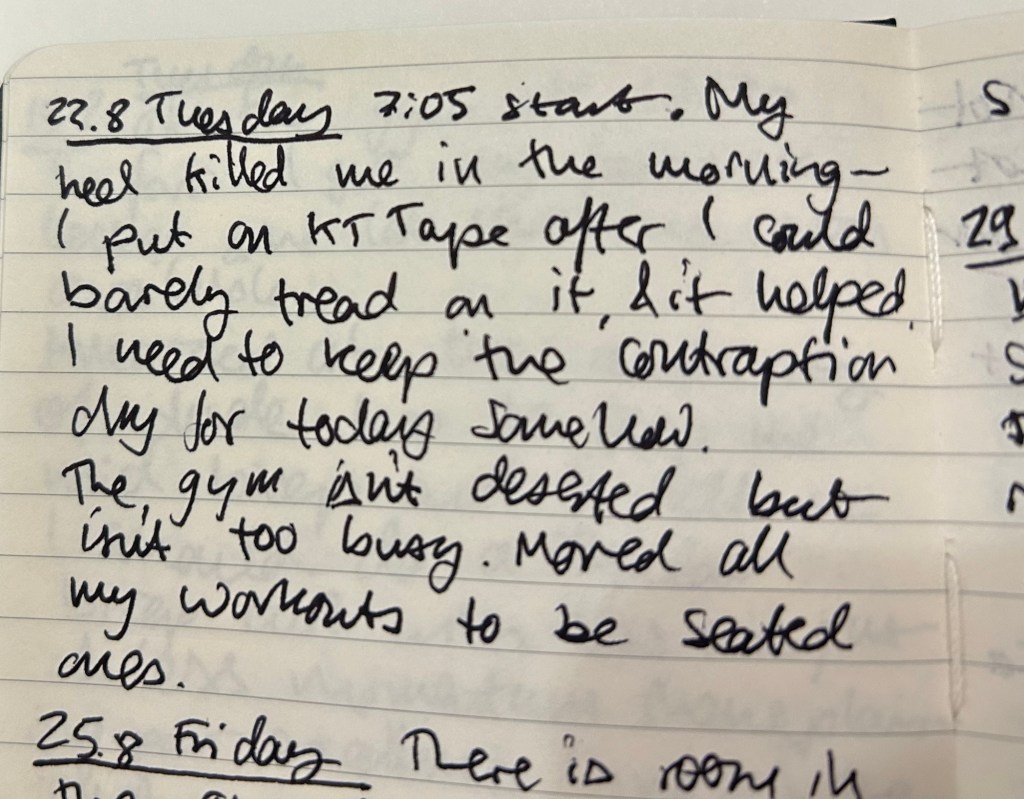 22.8 Tuesday 7:05 start. My
heel killed me in the morning -
I put on KT Tape after I could
barely tread on it, & it helped.
I need to keep the contraption
dry for today somehow.
The gym isn't deserted but
isn't too busy. Moved all
my workouts to be seated
ones.
25.8 Friday There is room in
S
29